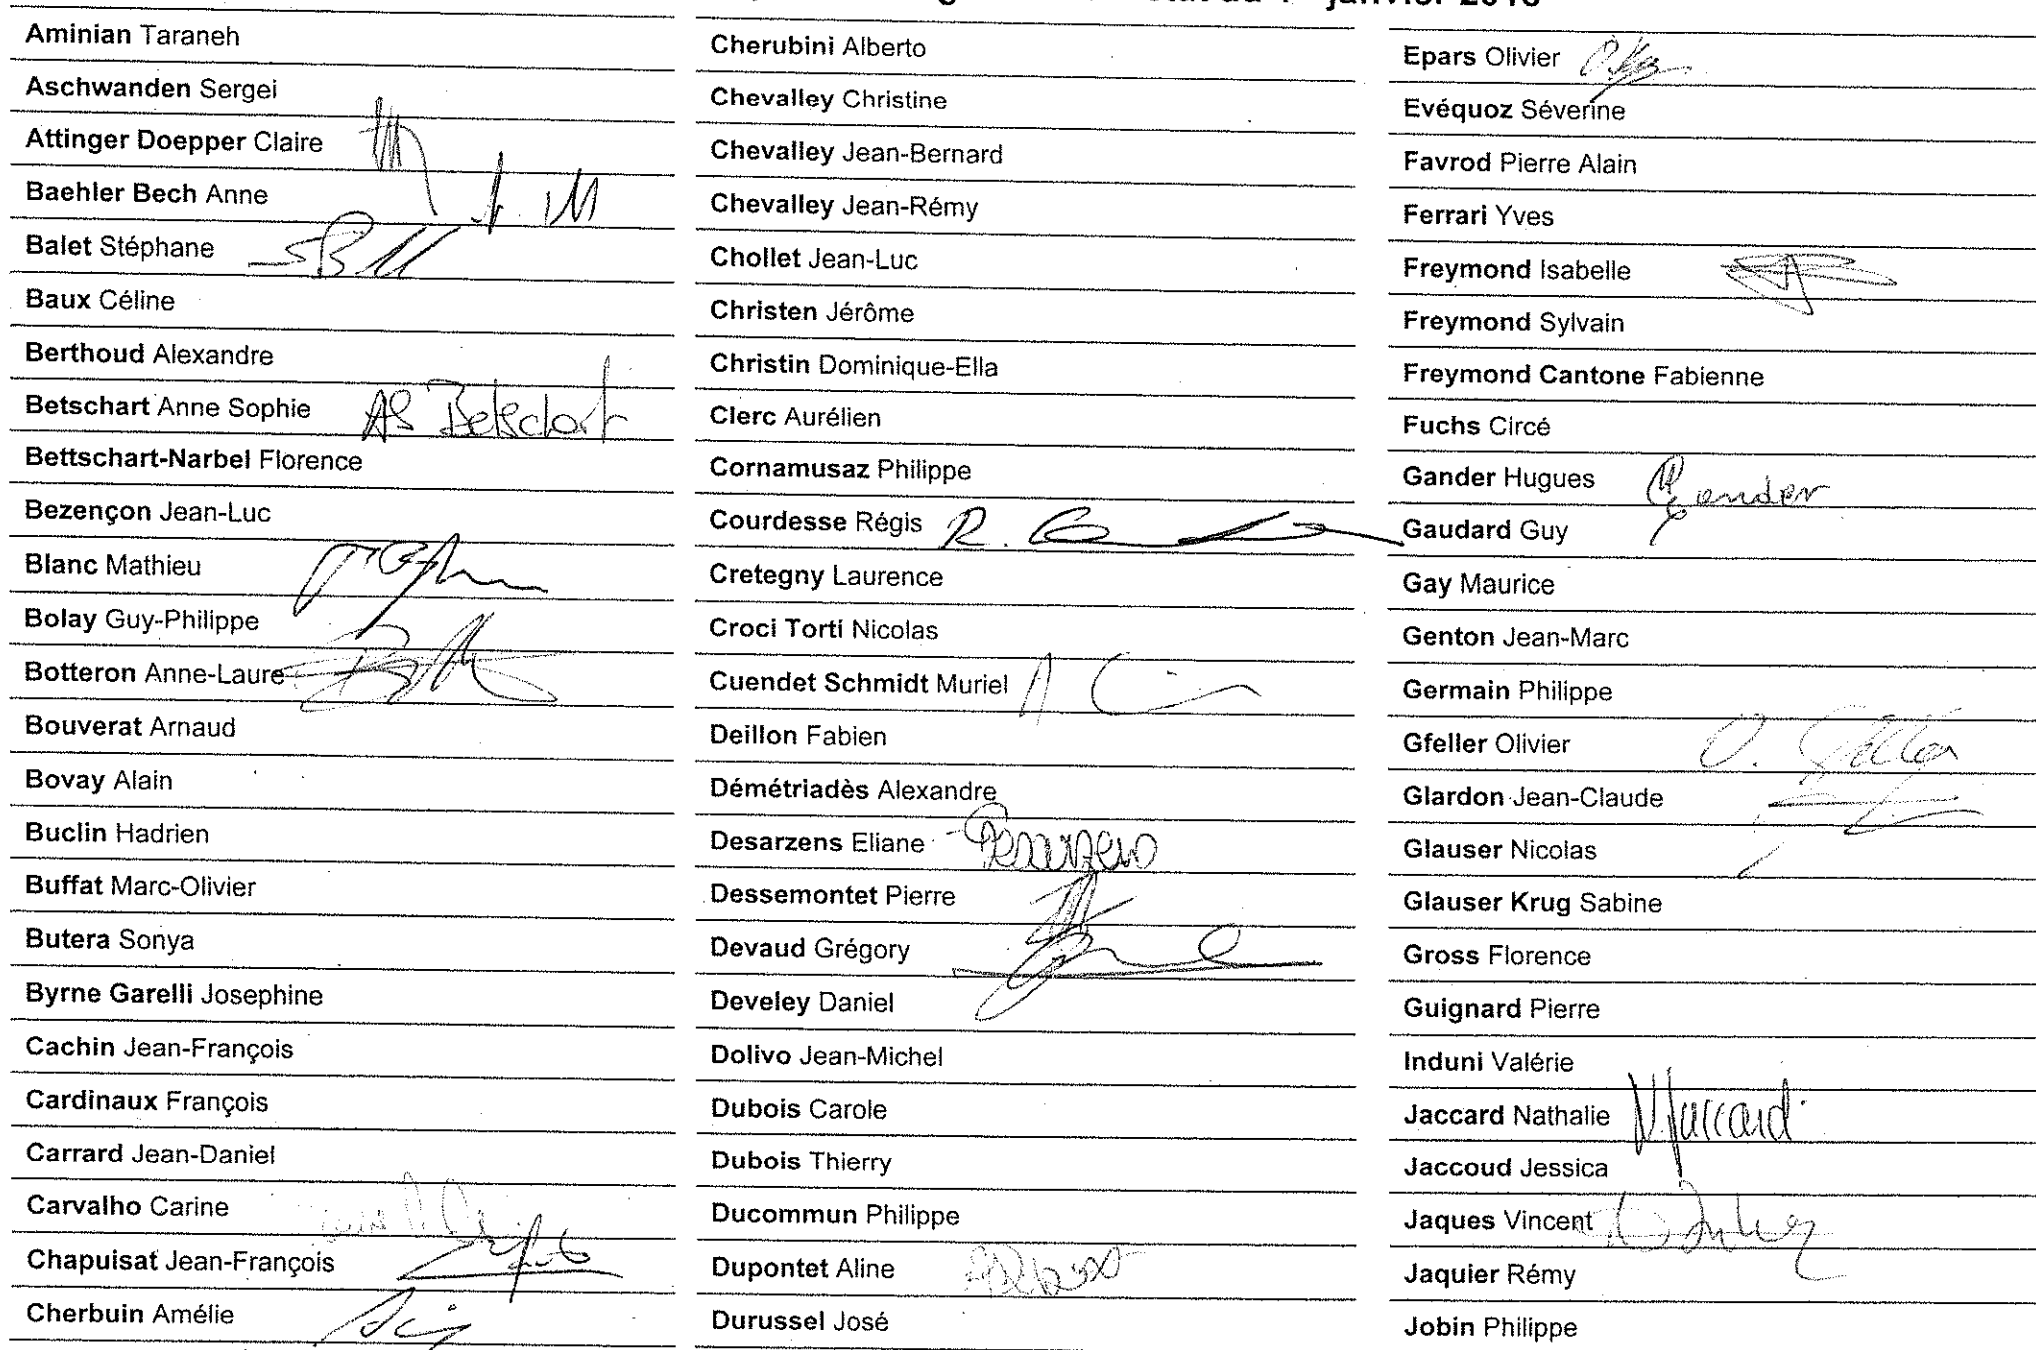 janvier 2018
Aminian Taraneh
Aschwanden Sergei
Attinger Doepper Claire
Baehler Bech Anne
Balet Stéphane
Baux Céline
Berthoud Alexandre
Betschart Anne Sophie AS Betschart
Bettschart-Narbel Florence
Bezençon Jean-Luc
Blanc Mathieu
Bolay Guy-Philippe
Botteron Anne-Laure
Bouverat Arnaud
Bovay Alain
Buclin Hadrien
Buffat Marc-Olivier
Butera Sonya
Byrne Garelli Josephine
Cachin Jean-François
Cardinaux François
Carrard Jean-Daniel
Carvalho Carine
Chapuisat Jean-François
Cherbuin Amélie
Cherubini Alberto
Chevalley Christine
Chevalley Jean-Bernard
Chevalley Jean-Rémy
Chollet Jean-Luc
Christen Jérôme
Christin Dominique-Ella
Clerc Aurélien
Cornamusaz Philippe
Courdesse Régis R.
Cretegny Laurence
Croci Torti Nicolas
Cuendet Schmidt Muriel
Deillon Fabien
Démétriadès Alexandre
Desarzens Eliane Desarzens
Dessemontet Pierre
Devaud Grégory
Develey Daniel
Dolivo Jean-Michel
Dubois Carole
Dubois Thierry
Ducommun Philippe
Dupontet Aline
Durussel José
Epars Olivier
Evéquoz Séverine
Favrod Pierre Alain
Ferrari Yves
Freymond Isabelle
Freymond Sylvain
Freymond Cantone Fabienne
Fuchs Circé
Gander Hugues Gander
Gaudard Guy
Gay Maurice
Genton Jean-Marc
Germain Philippe
Gfeller Olivier O. Gfeller
Glardon Jean-Claude
Glauser Nicolas
Glauser Krug Sabine
Gross Florence
Guignard Pierre
Induni Valérie
Jaccard Nathalie N. Jaccard
Jaccoud Jessica
Jaques Vincent
Jaquier Rémy
Jobin Philippe